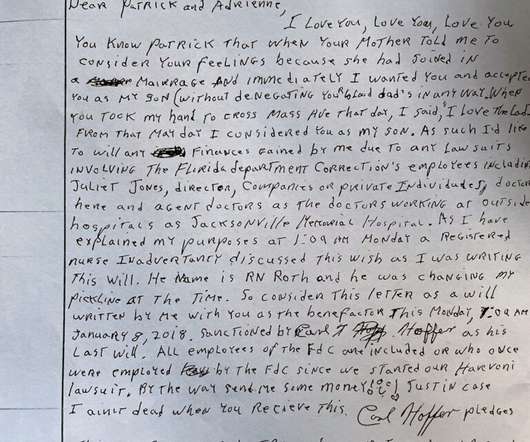 Dear Patrick and Adrienne,
I Love You, Love You, Love You
You Know Patrick that when your Mother Told me To
consider your Feelings because she had Joined in
a Mairrage and immediately I wanted you and accepted
you as my son (without denegating your blaid dad's in any way. When
you took my hand to cross Mass Ave that day, I said, "I Love the Lad
From that May day I considered you as my son. As such I'd like
to will any Finances gained by me due to any Lawsuits
involving the Florida department Correction's employees including
Juliet Jones, director, Companies or private Individules, doctors
here and agent doctors as the doctors working at outside
hospitals as Jacksonville Memorial Hospital. As I have
explained my purposes at 1:09 AM Monday a Registered
nurse Inadvertancy discussed this wish as I was writing
This will. He Name is RN Roth and he was changing my
pickline at the Time. So consider this Letter as a will
written by me with you as the benefactor This Monday, 1:09 AM
January 8, 2018. Sanctioned by Carl T Hoffer as his
Last Will. All employees of the FdC are included or who once
were employed by the FdC since we started our Harvoni
lawsuit. By the way send me some money! Just in case
I ain't dead when you Recieve This. Carl Hoffer pledges